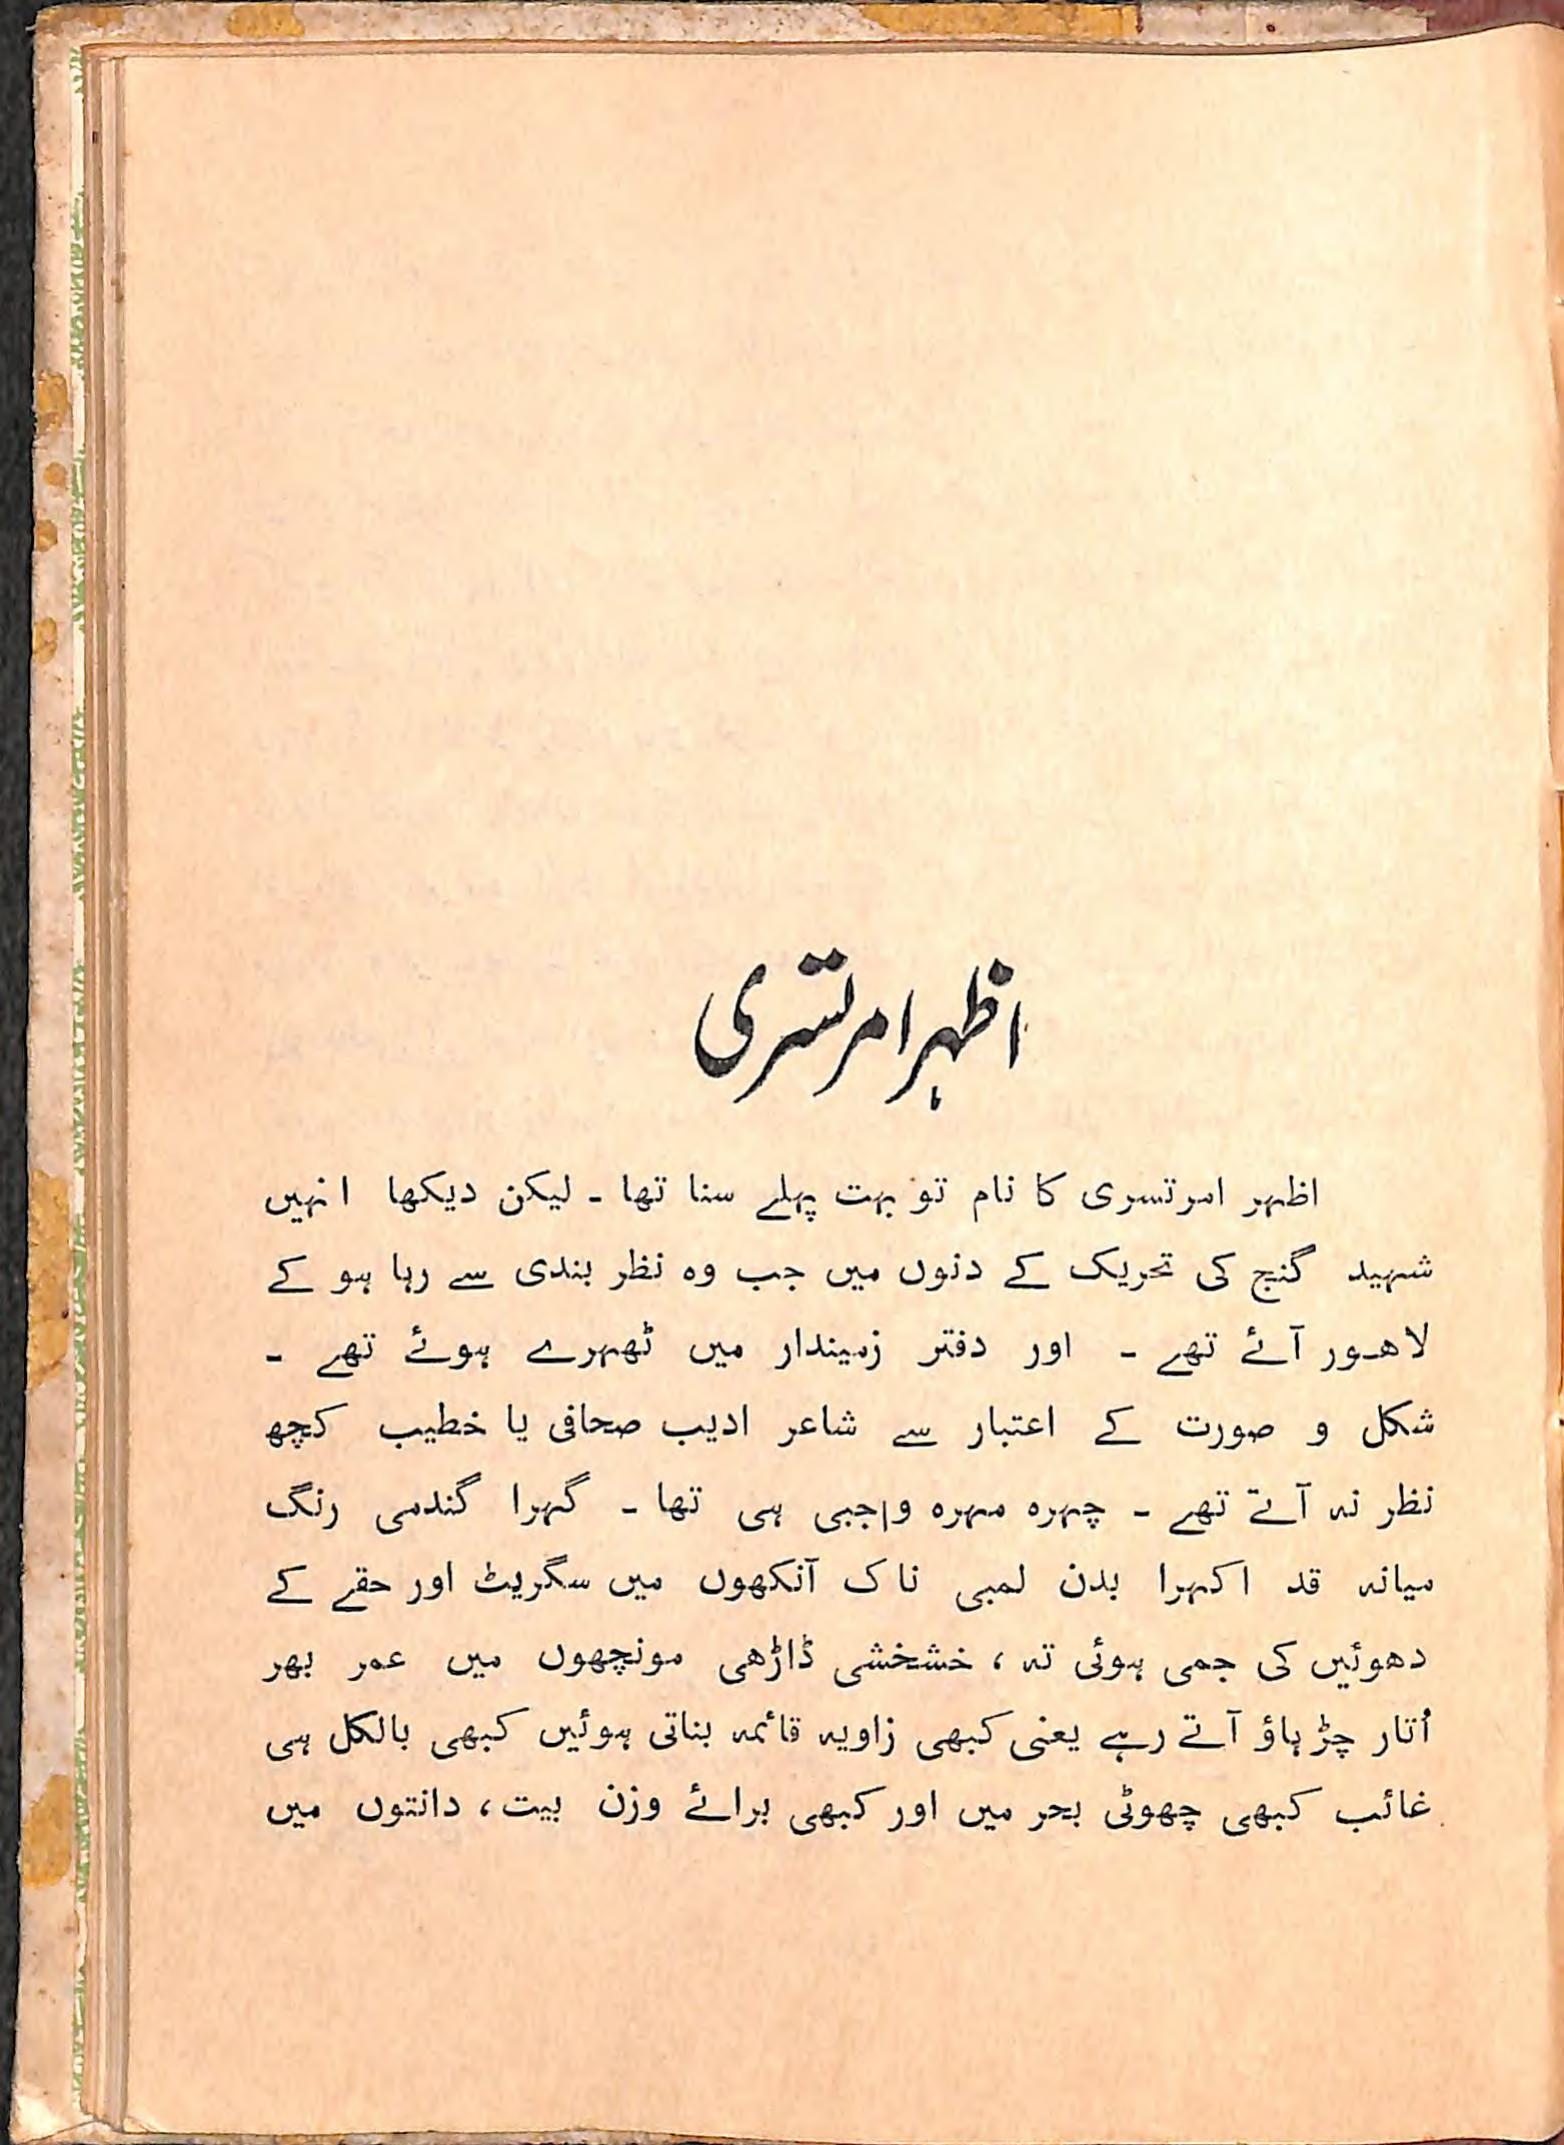 اظہر امرتسری
اظہر امرتسری کا نام تو بہت پہلے سنا تھا ۔ لیکن دیکھا انہیں
شہید گنج کی تحریک کے دنوں میں جب وہ نظر بندی سے رہا ہو کے
لاھور آئے تھے ۔ اور دفتر زمیندار میں ٹھہرے ہوئے تھے ۔
شکل و صورت کے اعتبار سے شاعر ادیب صحافی یا خطیب کچھ
نظر نہ آتے تھے ۔ چہرہ مہرہ واجبی ہی تھا ۔ گہرا گندمی رنگ
میانہ قد اکہرا بدن لمبی ناک آنکھوں میں سگریٹ اور حقے کے
دھوئیں کی جمی ہوئی تہ ، خشخشی ڈاڑھی مونچھوں میں عمر بھر
اُتار چڑہاؤ آتے رہے یعنی کبھی زاویہ قائمہ بناتی ہوئیں کبھی بالکل ہی
غائب کبھی چھوٹی بحر میں اور کبھی برائے وزن بیت ، دانتوں میں